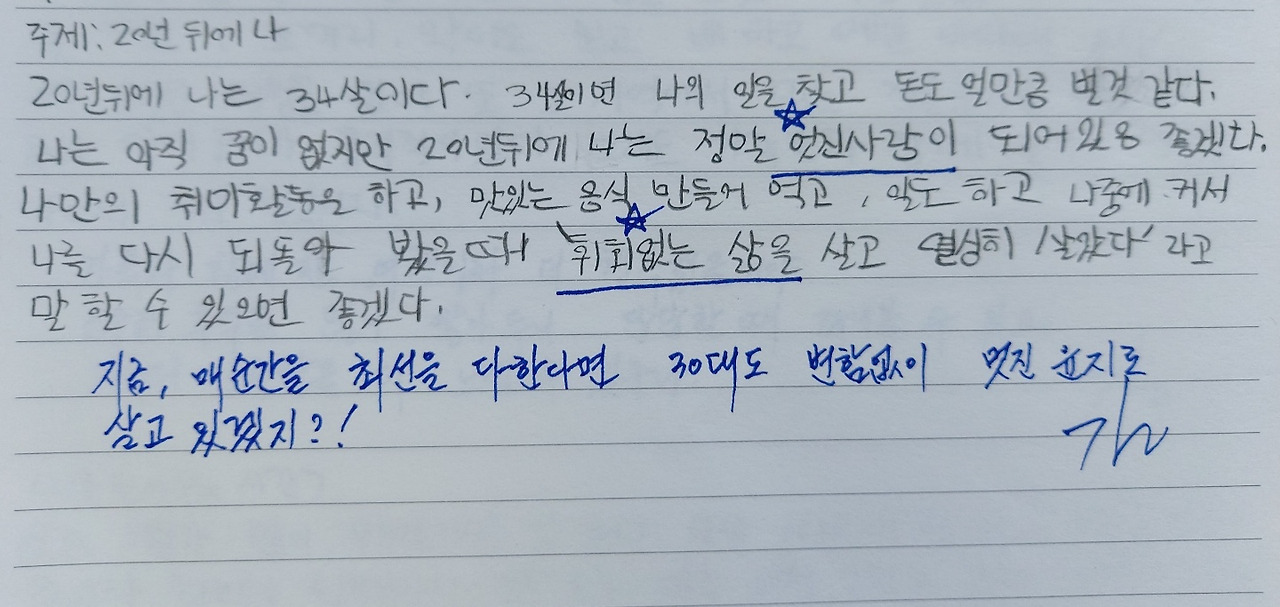 주제: 20년 뒤에 나
20년뒤에 나는 34살이다. 34살이면 나의 일을 찾고 돈도 얼만큼 벌것 같다.
나는 아직 꿈이 없지만 20년뒤에 나는 정말 멋진사람이 되어있음 좋겠다.
나만의 취미활동을 하고, 맛있는 음식 만들거 먹고, 일도 하고 나중에 커서
나를 다시 되돌아 봤을때 '휘회없는 삶을 살고 열심히 살았다' 라고
말 할 수 있으면 좋겠다.
지금, 매순간을 최선을 다한다면 30대도 변함없이 멋진 윤지로
살고 있겠지?!